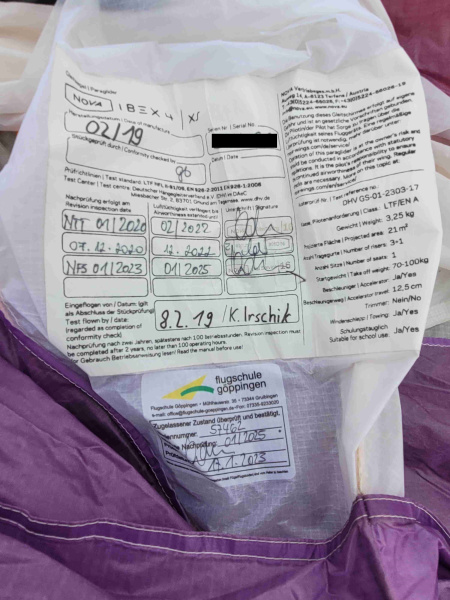 Gleitsegel / Paraglider
NOVA IBEX 4 / XS
Herstellungsdatum / Date of manufacture
02/19
Stückgeprüft durch / Conformity checked by
Serien Nr. / Serial No.
Datum / Date
Prüfrichtlinien / Test standard: LTF NFL II-91/09, EN 926-2:2013, EN 926-1:2006
Test Center / Test centre: Deutscher Hängegleiterverband e.V. DHV im DAeC
Miesbacher Str. 2, 83701 Gmund am Tegernsee, www.dhv.de
Nachprüfung erfolgt am
Revision inspection date
Lufttüchtigkeit verlängert bis
Airworthiness extended until
Unterschrift / Signature
NTT 01/2020 02/2022
07.12.2020 12.2022
NFS 01/2023 01/2025
Eingeflogen von / Datum (gilt
als Abschluss der Stückprüfung)
Test flown by / date:
(regarded as completion of
conformity check)
8.2.19 / K. Irschik
Nachprüfung nach zwei Jahren, spätestens nach 100 Betriebsstunden. Revision inspection must
be completed after 2 years, no later than 100 operating hours.
Vor Gebrauch Betriebsanweisung lesen! Read the manual before use!
NOVA Vertriebsges.m.b.H.
Auweg 14, A-6123 Terfens / Austria
www.nova.eu
Die Benutzung dieses Gleitsegels erfolgt auf eigene
Musterprüf-Nr. / Test reference no.
DHV GS-01-2303-17
Klasse, Pilotenanforderung / Class: LTF/EN A
Gewicht / Weight: 3,25 kg
Projizierte Fläche / Projected area: 21 m²
Anzahl Tragegurte / Number of risers: 3+1
Anzahl Sitze / Number of seats: 1
Startgewicht / Take off weight: 70-100kg
Beschleuniger / Accelerator: Ja/Yes
Beschleunigerweg / Accelerator travel: 12,5 cm
Trimmer: Nein/No
Windenschlepp / Towing: Ja/Yes
Schulungstauglich
Suitable for school use: Ja/Yes
flugschule
göppingen
Flugschule Göppingen • Mühlhauserstr. 35 • 73344 Gruibingen
e-mail: office@flugschule-goeppingen.de•Fon: 07335-9233020
Zugelassener Zustand überprüft und bestätigt.
57462
Nächste Nachprüfung: 01/2025
17.1.2023